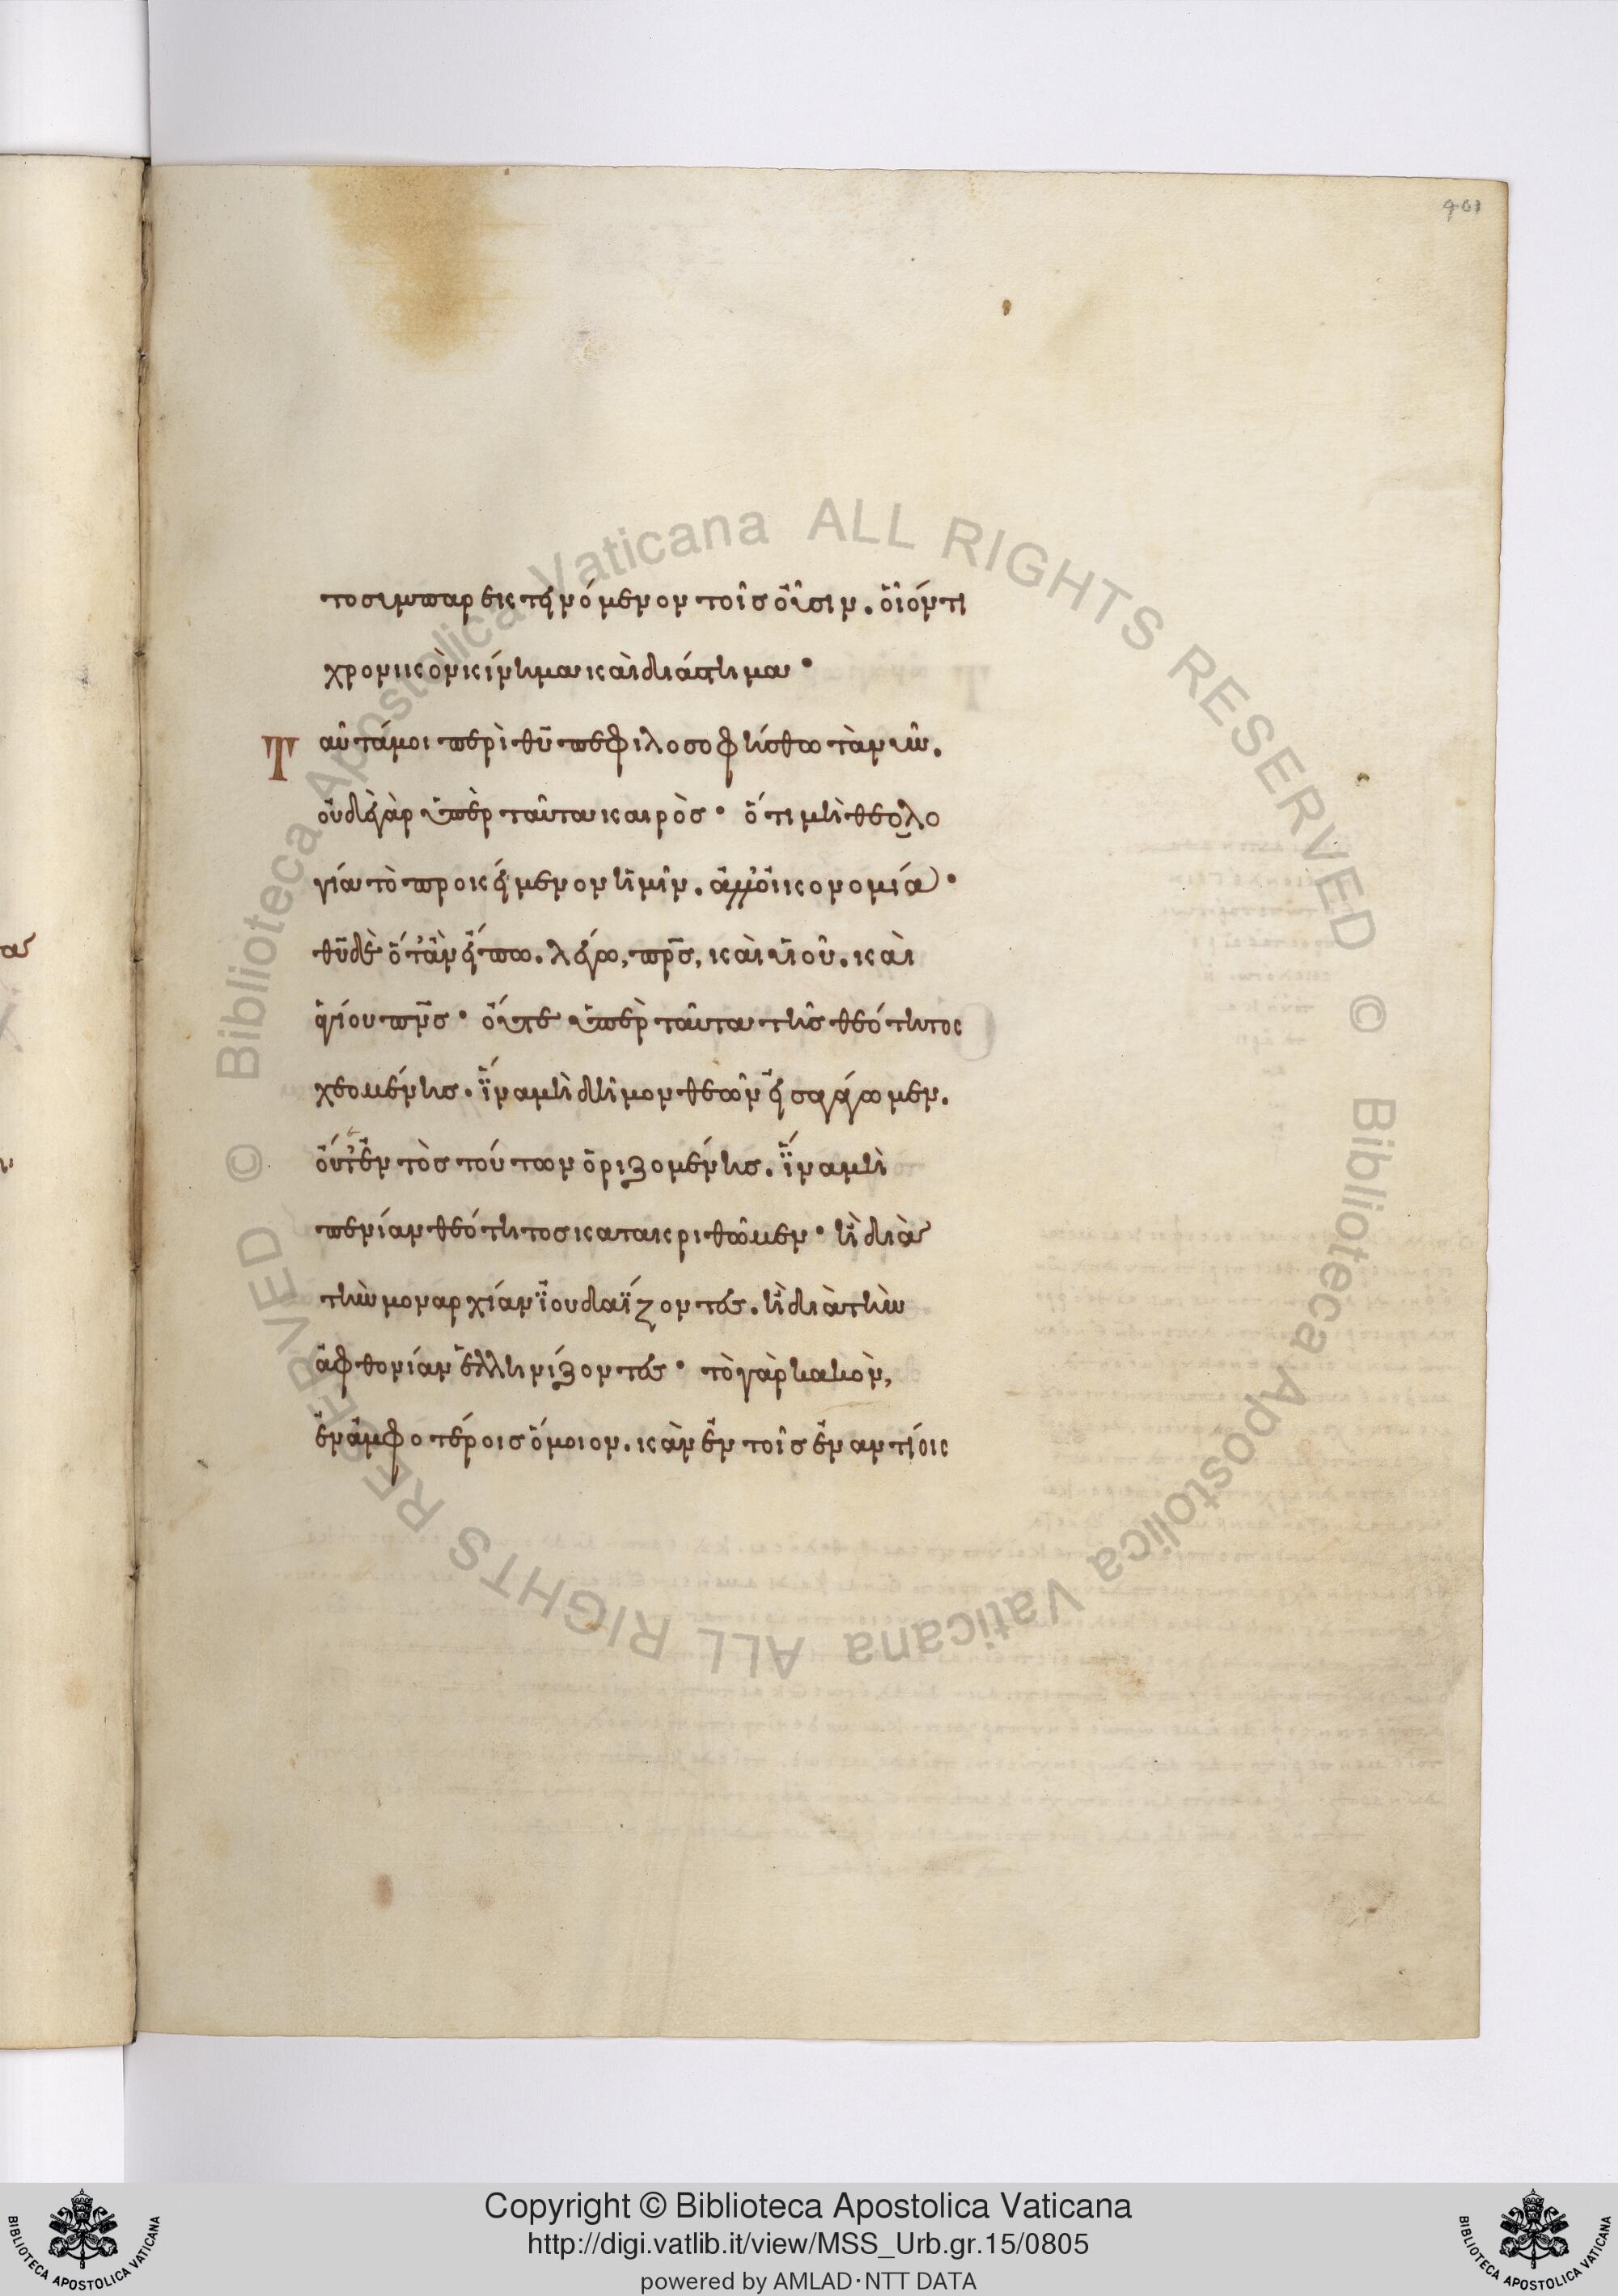 401
το συμπαρεκτεινόμενον τοῖς οὖσιν. οἷόν τι
χρονικὸν κίνημα καὶ διάστημα·
Ταῦτά μοι περὶ θ̅υ̅ πεφιλοσοφήσθω τὰ νῦν.
οὐδὲ γὰρ ὑπὲρ ταῦτα καιρὸς· ὅτι μὴ θεολο
γία τὸ προκείμενον ἡμῖν. ἀλλ' οἰκονομία·
θ̅υ̅ δὲ ὅταν εἴπω. λέγω, π̅ρ̅ς̅, καὶ υἱοῦ. καὶ
ἁγίου π̅ν̅ς̅· οὔτε ὑπὲρ ταῦτα τῆς θεότητος
χεομένης. ἵνα μὴ δῆμον θεῶν εἰσαγάγωμεν.
οὔτε ἐντὸς τούτων ὁριζομένης. ἵνα μὴ
πενίαν θεότητος κατακριθῶμεν· ἢ διὰ
τὴν μοναρχίαν ἰουδαΐζοντες. ἢ διὰ τὴν
ἀφθονίαν ἑλληνίζοντες· τὸ γὰρ κακὸν,
ἐν ἀμφοτέροις ὅμοιον. κἂν ἐν τοῖς ἐναντίοις
© Biblioteca Apostolica Vaticana ALL RIGHTS RESERVED © Biblioteca Apostolica Vaticana ALL RIGHTS RESERVED
Copyright © Biblioteca Apostolica Vaticana
http://digi.vatlib.it/view/MSS_Urb.gr.15/0805
powered by AMLAD·NTT DATA
BIBLIOTECA APOSTOLICA VATICANA
BIBLIOTECA APOSTOLICA VATICANA